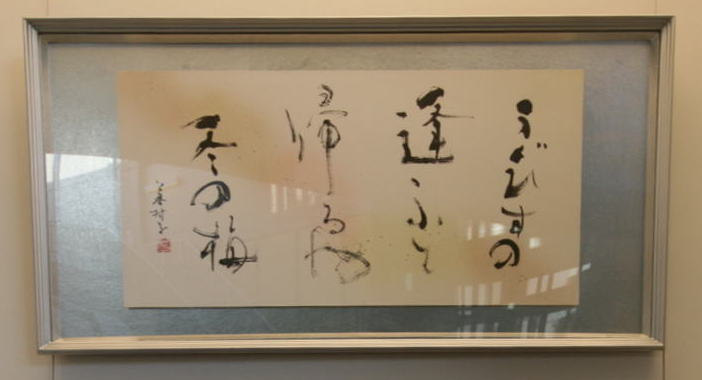 うぐひすの
逢ふて
帰るや
冬の梅